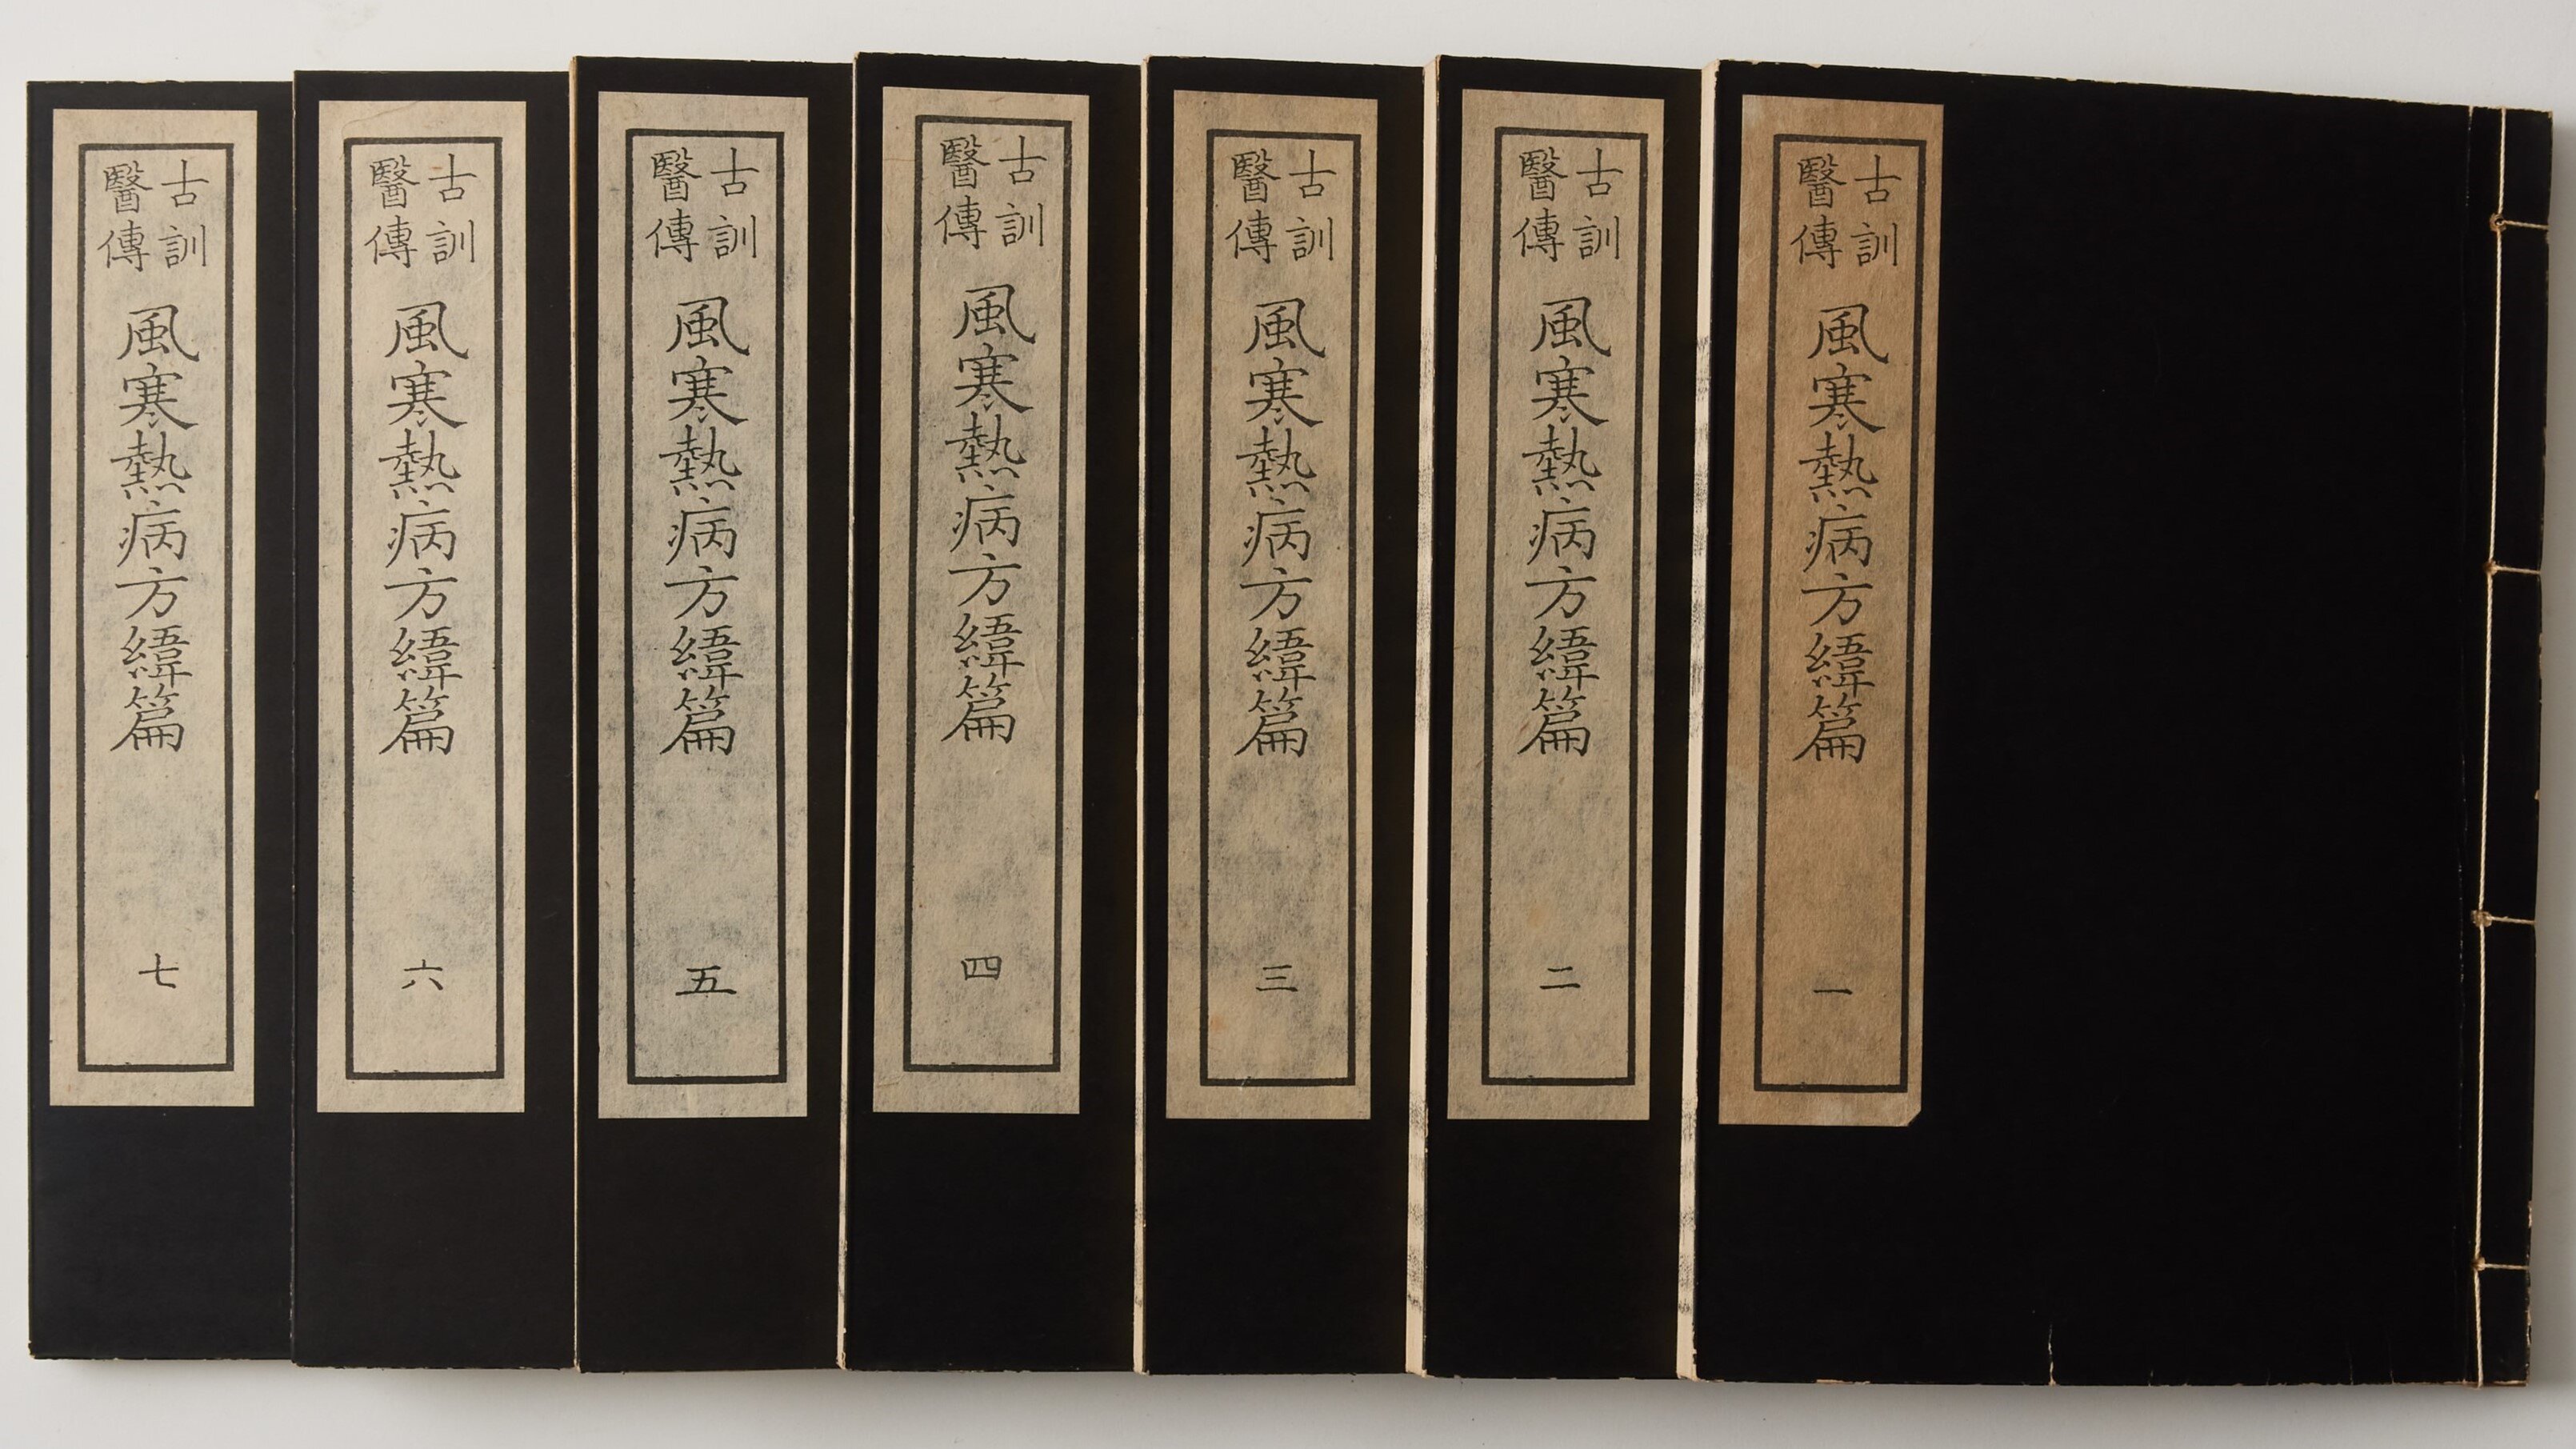 古訓醫傳
風寒熱病方緯篇
一
古訓醫傳
風寒熱病方緯篇
二
古訓醫傳
風寒熱病方緯篇
三
古訓醫傳
風寒熱病方緯篇
四
古訓醫傳
風寒熱病方緯篇
五
古訓醫傳
風寒熱病方緯篇
六
古訓醫傳
風寒熱病方緯篇
七